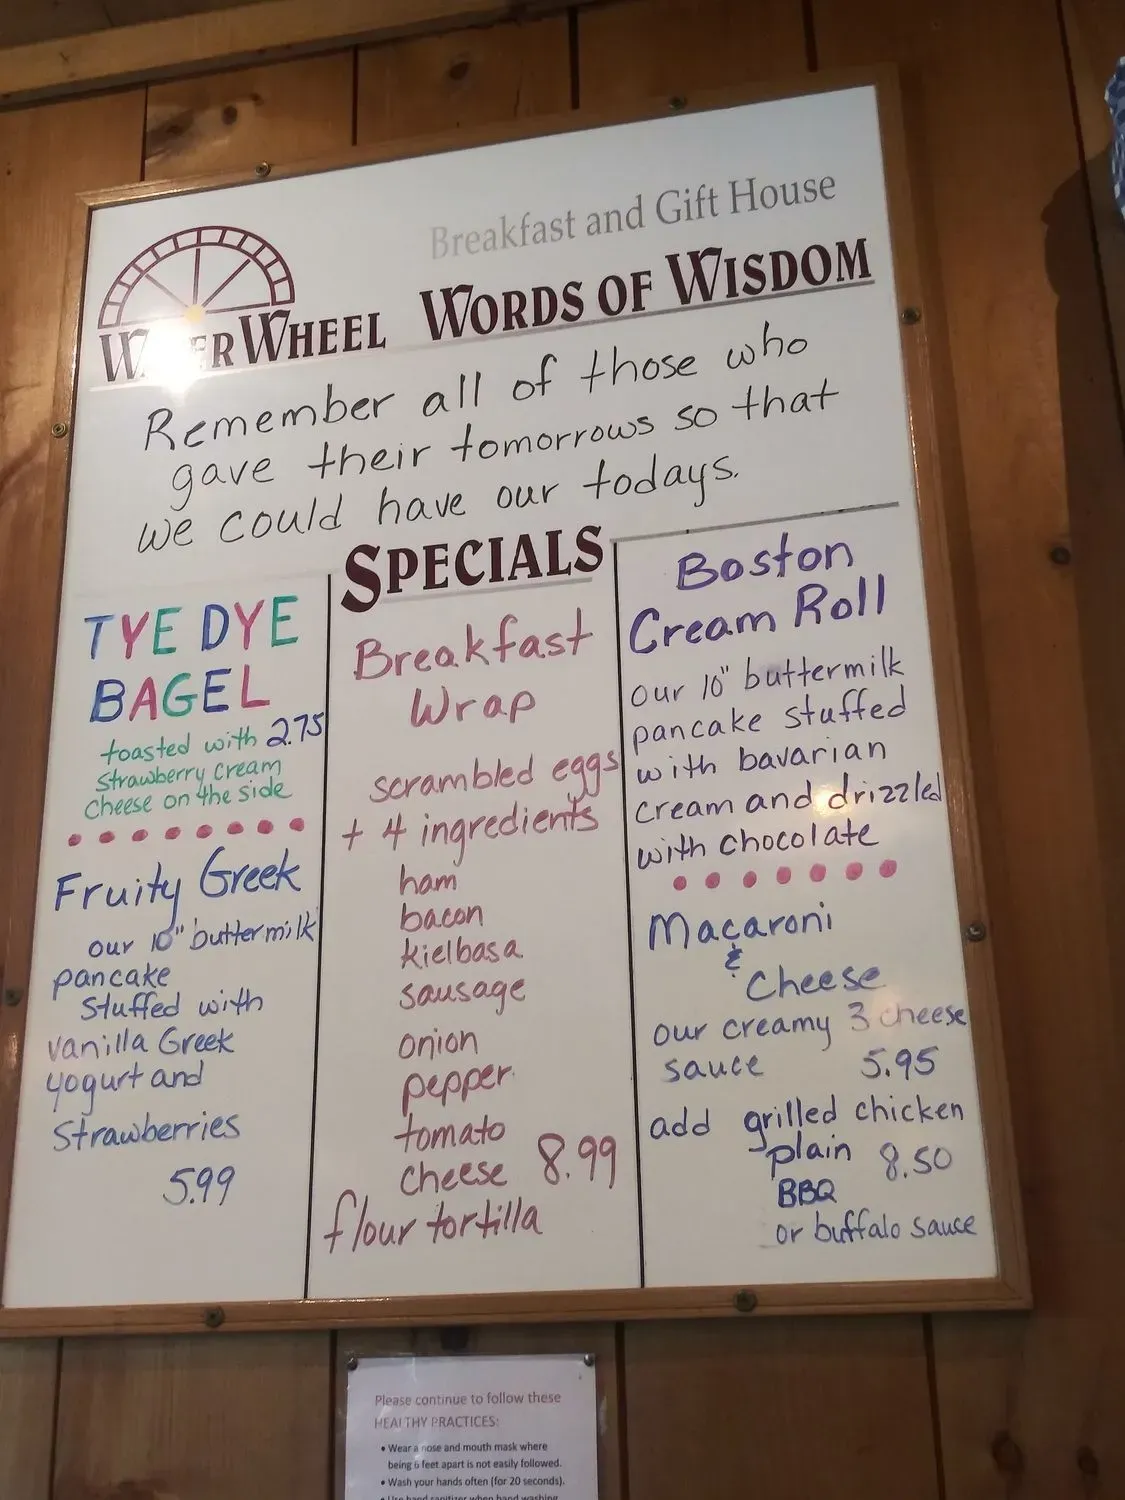 Breakfast and Gift House
WATERWHEEL WORDS OF WISDOM
Remember all of those who
gave their tomorrows so that
we could have our todays.
SPECIALS
TYE DYE
BAGEL
toasted with 2.75
strawberry cream
cheese on the side
Fruity Greek
our 10" buttermilk
pancake
stuffed with
vanilla Greek
yogurt and
strawberries
5.99
Breakfast
Wrap
scrambled eggs
+ 4 ingredients
ham
bacon
kielbasa
sausage
onion
pepper
tomato
cheese 8.99
flour tortilla
Boston
Cream Roll
our 10" buttermilk
pancake stuffed
with bavarian
cream and drizzled
with chocolate
Macaroni
&
Cheese
our creamy 3 cheese
sauce 5.95
add grilled chicken
plain 8.50
BBQ
or buffalo sauce
Please continue to follow these
HEALTHY PRACTICES:
• Wear a nose and mouth mask where
being 6 feet apart is not easily followed.
• Wash your hands often (for 20 seconds).
• Use hand sanitizer when hand washing